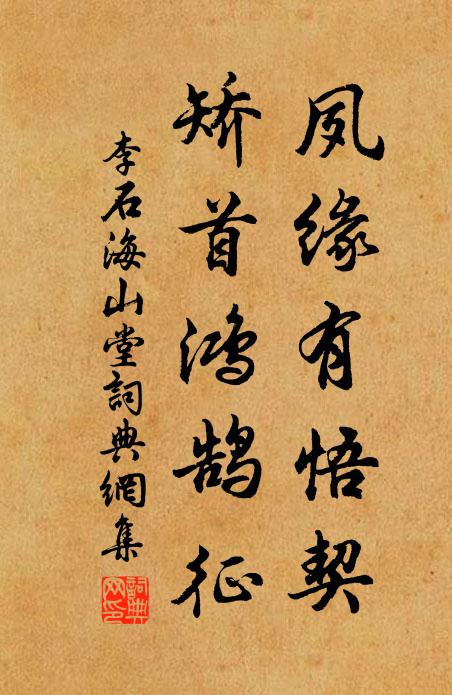 夙缘有悟契
矫首鸿鹄征
李石海山堂詞典網集
詞典網印